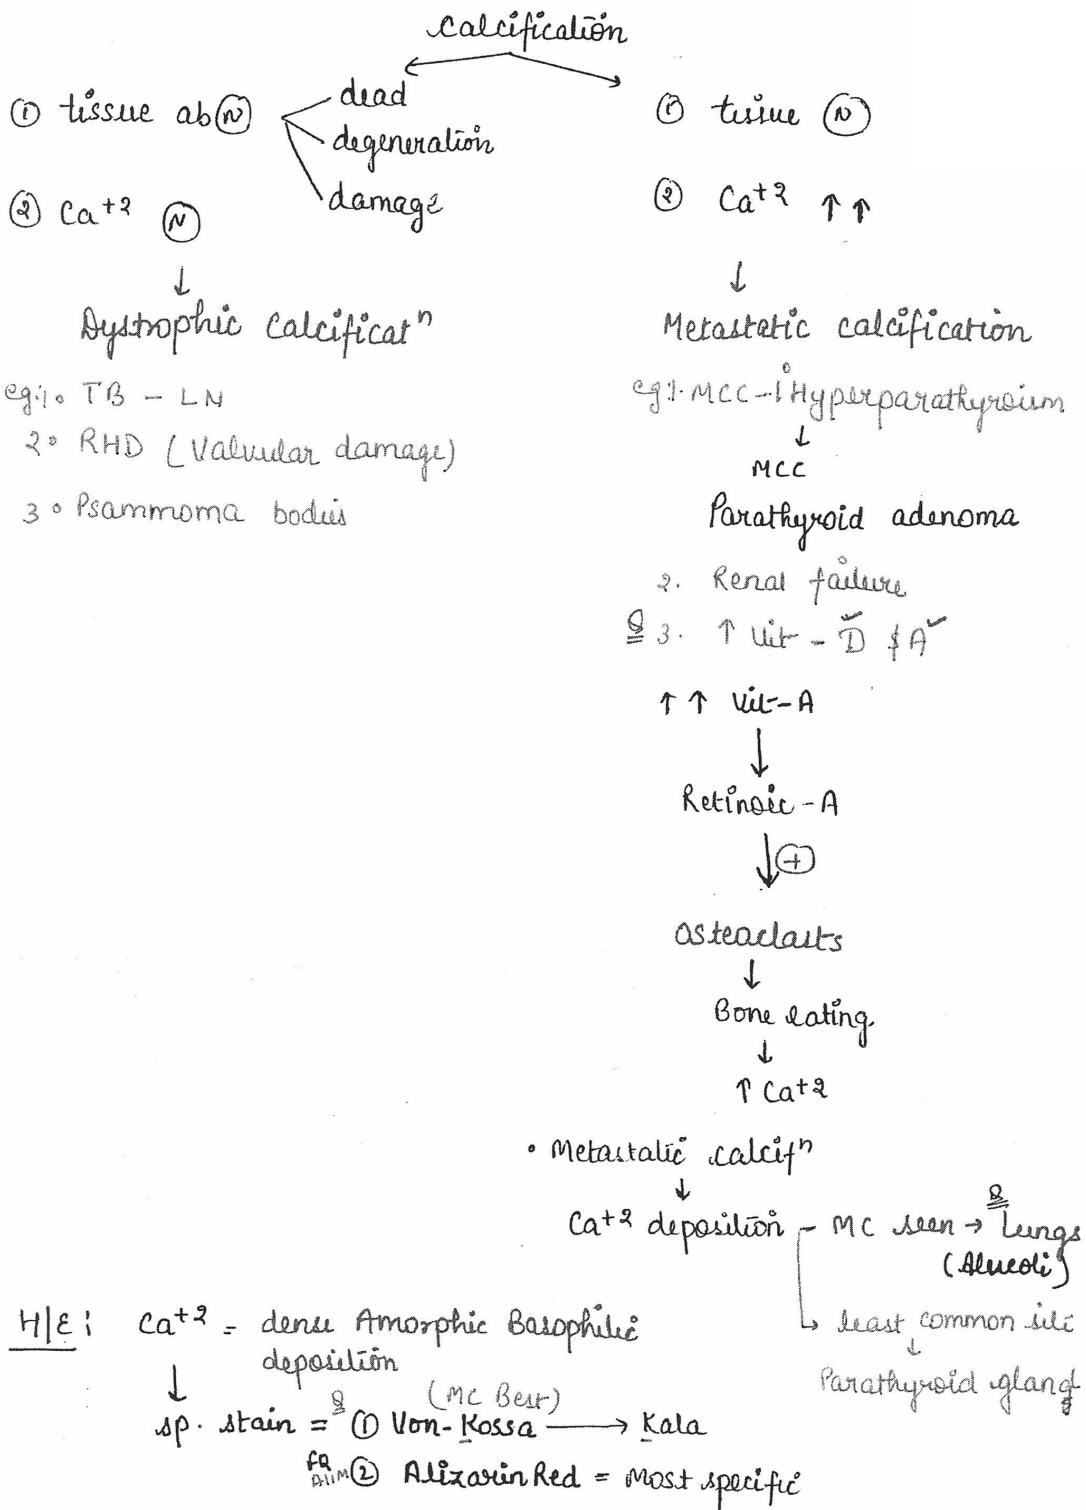 Calcification
① tissue ab Ⓝ
dead
degeneration
damage
② Ca+2 Ⓝ
↓
Dystrophic calcificatⁿ
eg:1. TB - LN
2. RHD (Valvular damage)
3. Psammoma bodies
① tissue Ⓝ
② Ca+2 ↑↑
↓
Metastatic calcification
eg 1. MCC - 1° Hyperparathyroism
↓
MCC
Parathyroid adenoma
2. Renal failure
Q 3. ↑ Vit - D & A
↑↑ Vit-A
↓
Retinoic-A
↓ ⊕
Osteoclasts
↓
Bone eating
↓
↑ Ca+2
• Metastatic calcifⁿ
↓
Ca+2 deposition - MC seen → Lungs
Q
(Alveoli)
↳ least common site
↓
Parathyroid gland
H/E: Ca+2 = dense Amorphic Basophilic
deposition
↓
(MC Best)
sp. stain = Q ① Von-Kossa → Kala
② Alizarin Red = Most specific